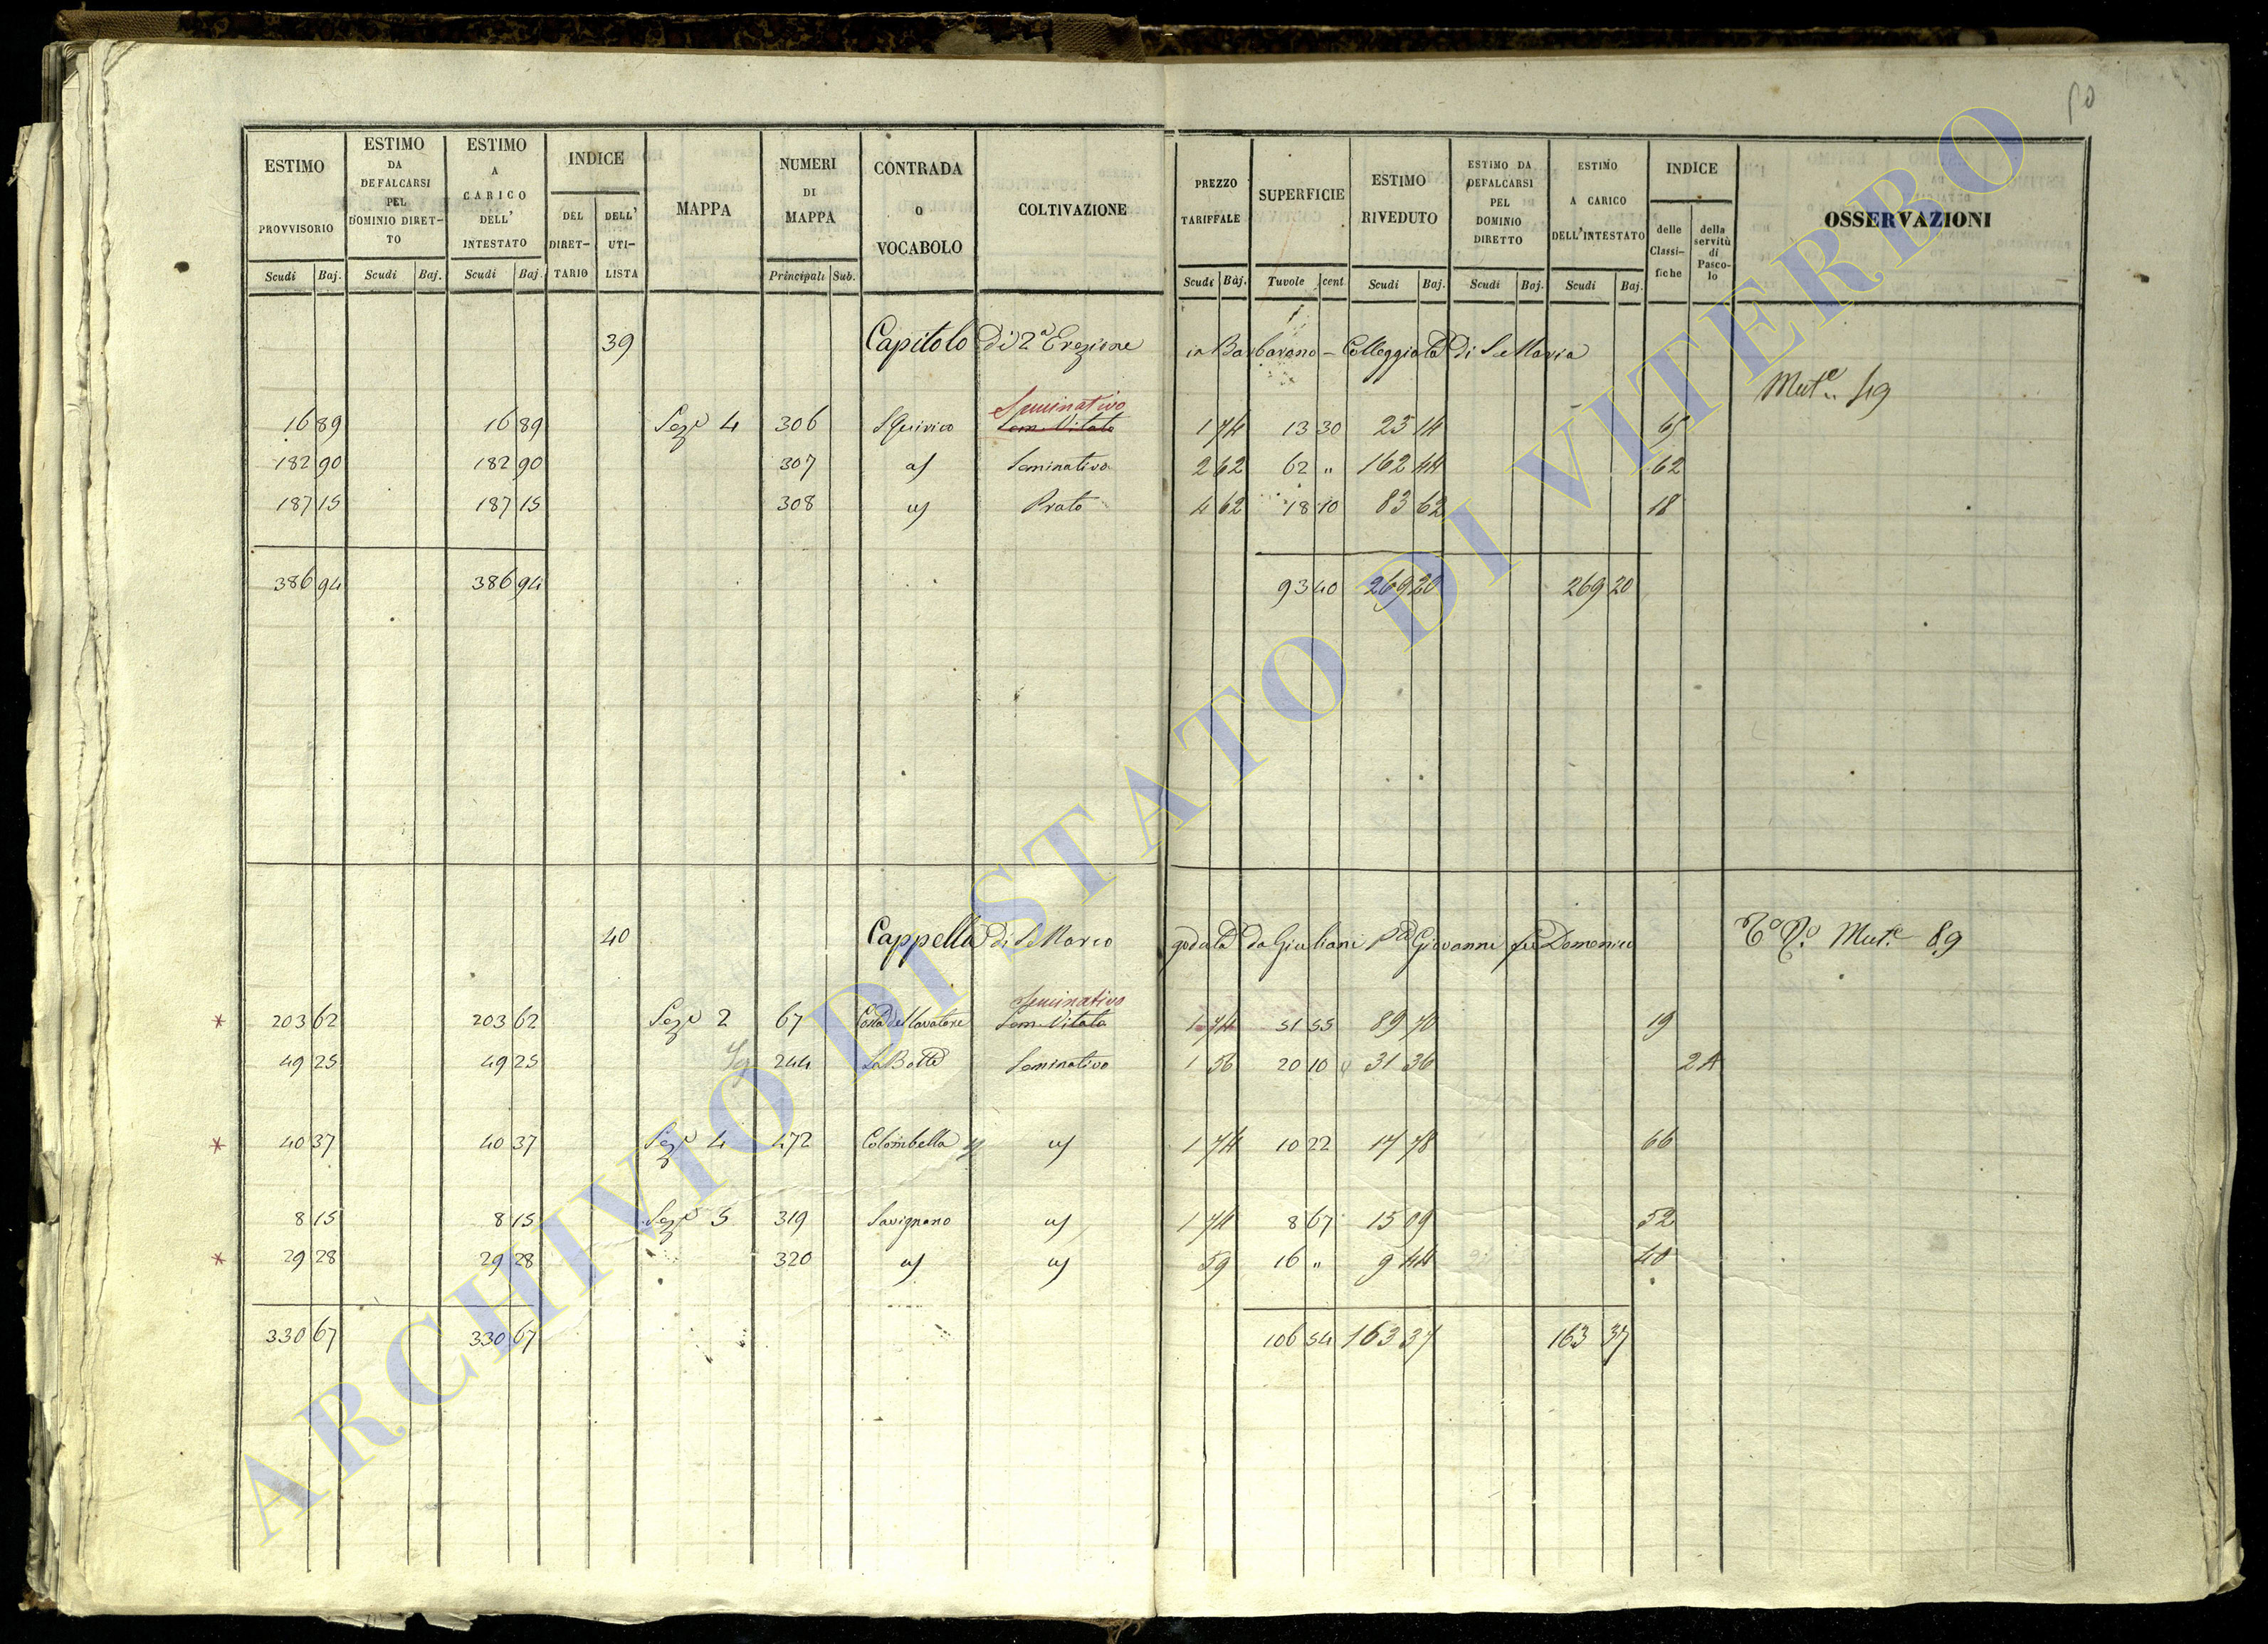 50
ESTIMO PROVVISORIO Scudi Baj. | ESTIMO DA DEFALCARSI PEL DOMINIO DIRETTO Scudi Baj. | ESTIMO A CARICO DELL' INTESTATO Scudi Baj. | INDICE DEL DIRETTARIO | DELL' UTILISTA | MAPPA | NUMERI DI MAPPA Principali Sub. | CONTRADA O VOCABOLO | COLTIVAZIONE | PREZZO TARIFFALE Scudi Baj. | SUPERFICIE Tavole cent | ESTIMO RIVEDUTO Scudi Baj. | ESTIMO DA DEFALCARSI PEL DOMINIO DIRETTO Scudi Baj. | ESTIMO A CARICO DELL'INTESTATO Scudi Baj. | INDICE delle Classifiche | della servitù di Pascolo | OSSERVAZIONI
39 Capitolo di 2a Erezione in Barbarano - Colleggiata di S. Maria
Mut.e 49
Seminativo
16 89 16 89 Seze 4 306 S Quirico Sem. Vitato 1 74 13 30 23 14 65
182 90 182 90 307 Seminativo 2 62 62 " 162 44 62
187 15 187 15 308 Prato 4 62 18 10 83 62 18
386 94 386 94 93 40 269 20 269 20
40 Cappella di S. Marco goduta da Giuliani Giovanni fu Domenico Mut.e 89
Seminativo
* 203 62 203 62 Seze 2 67 Sem. Vitato 1 74 51 55 89 70 19
49 25 49 25 244 La Botte Seminativo 1 56 20 10 31 36 24
* 40 37 40 37 Seze 4 472 Colombella 1 74 10 22 17 78 66
8 15 8 15 Seze 5 319 Savignano 1 74 8 67 15 09 52
* 29 28 29 28 320 59 16 " 9 44 40
330 67 330 67 106 54 163 37 163 37
ARCHIVIO DI STATO DI VITERBO